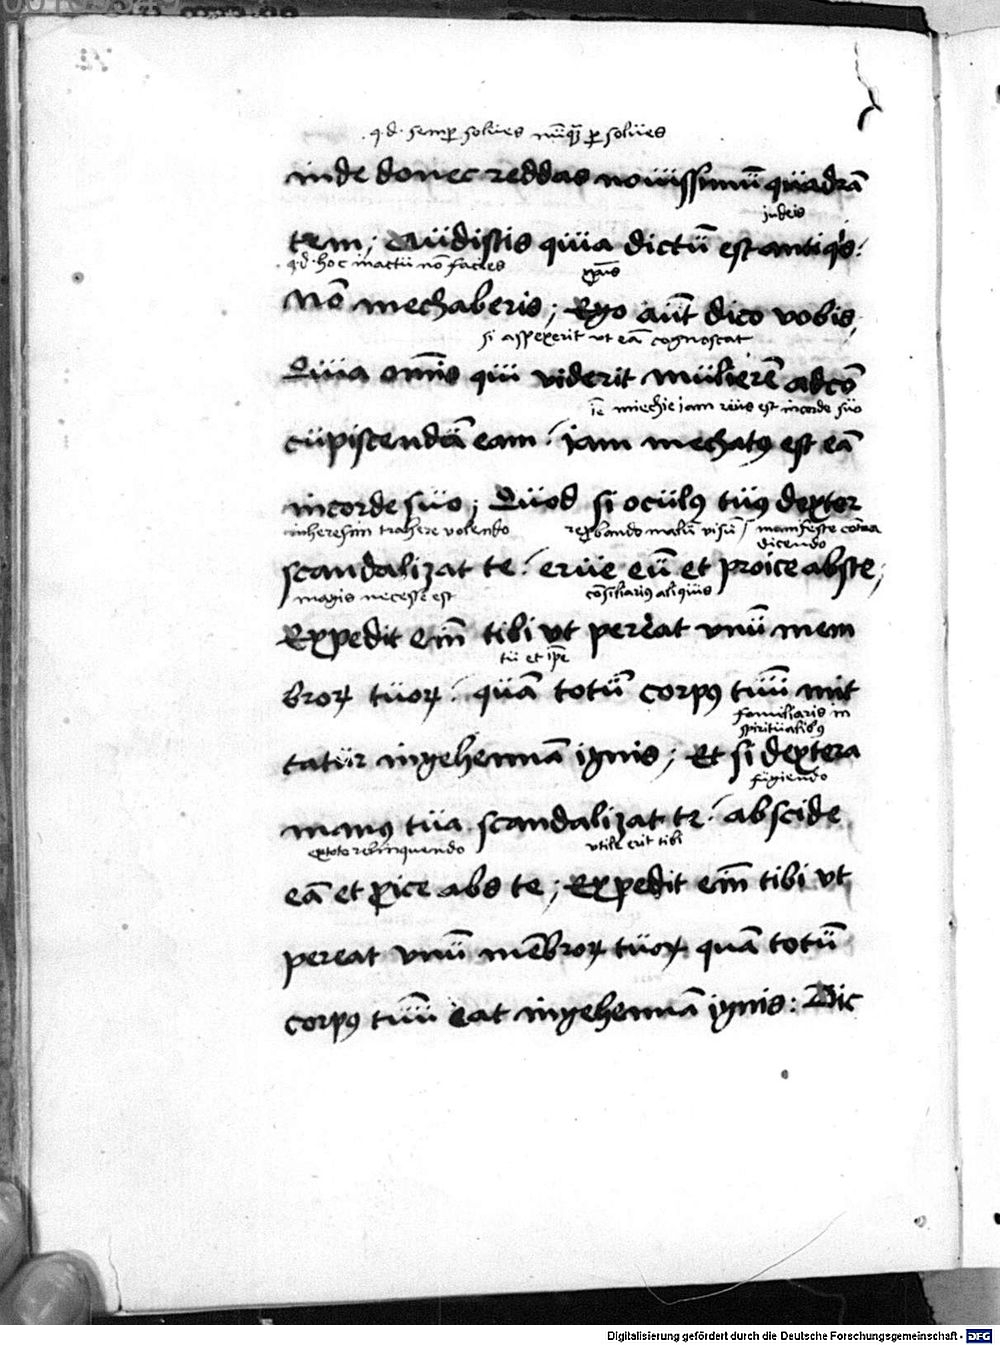 .q.d. semp solues nūq̄ p solues
inde donec reddas nouissimū quadrā
judeis
tem; Audistis quia dictū est antiqis:
.q.d. hoc inactu nō facies
xpanis
nō mechaberis; Ego aūt dico vobis;
si aspexerit vt eā cognoscat
Quia omīs qui viderit mulierē adcō
miechie iam reus est incorde suo
cupiscendā eam: iam mechatꝰ est eā
incorde suo; Quod si oculꝰ tuꝰ dexter
inheresim trahere volendo
malū visū manifeste
dicendo
scandalizat te: erue eū et proice abste;
magis necesse est
cōsiliariꝰ aliquis
Expedit eīm tibi vt pereat vnū mem
tu et ipe
broꝝ tuoꝝ: quā totū corpꝰ tuū mit
familiaris in
spiritualibꝰ
tatur ingehennā ignis; Et si dextera
fugiendo
manꝰ tua scandalizat te: abscide
extoto relinquendo
vtile erit tibi
eā et ꝓice abs te; Expedit eīm tibi vt
pereat vnū mēbroꝝ tuoꝝ quā totū
corpꝰ tuū eat ingehennā ignis: Dic
Digitalisierung gefördert durch die Deutsche Forschungsgemeinschaft - DFG